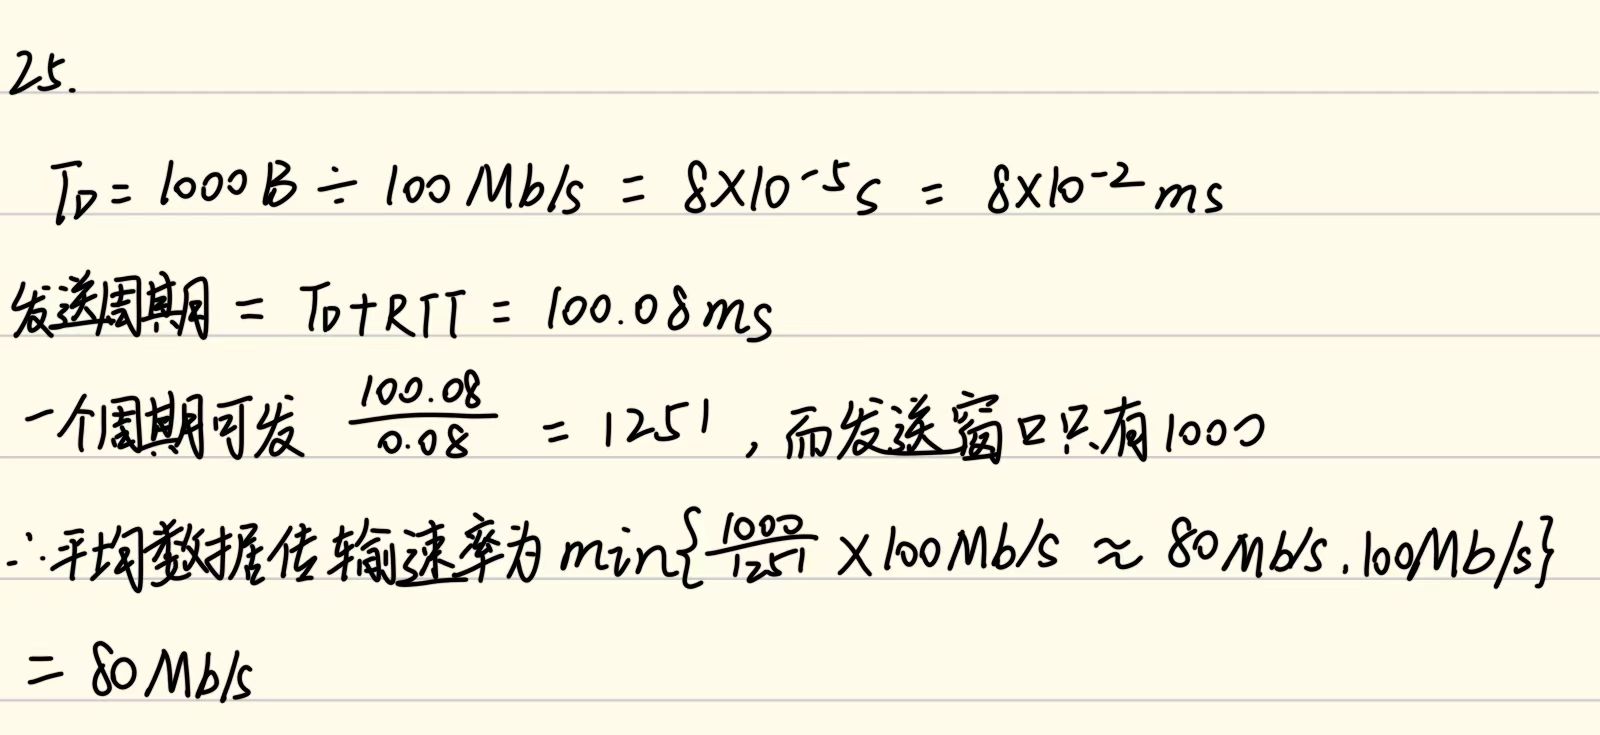 25.
T_D = 1000B ÷ 100Mb/s = 8×10⁻⁵s = 8×10⁻²ms
发送周期 = T_D+RTT = 100.08ms
一个周期可发 100.08/0.08 = 1251，而发送窗口只有1000
∴平均数据传输速率为 min{1000/1251 ×100Mb/s ≈ 80Mb/s.100Mb/s}
= 80Mb/s